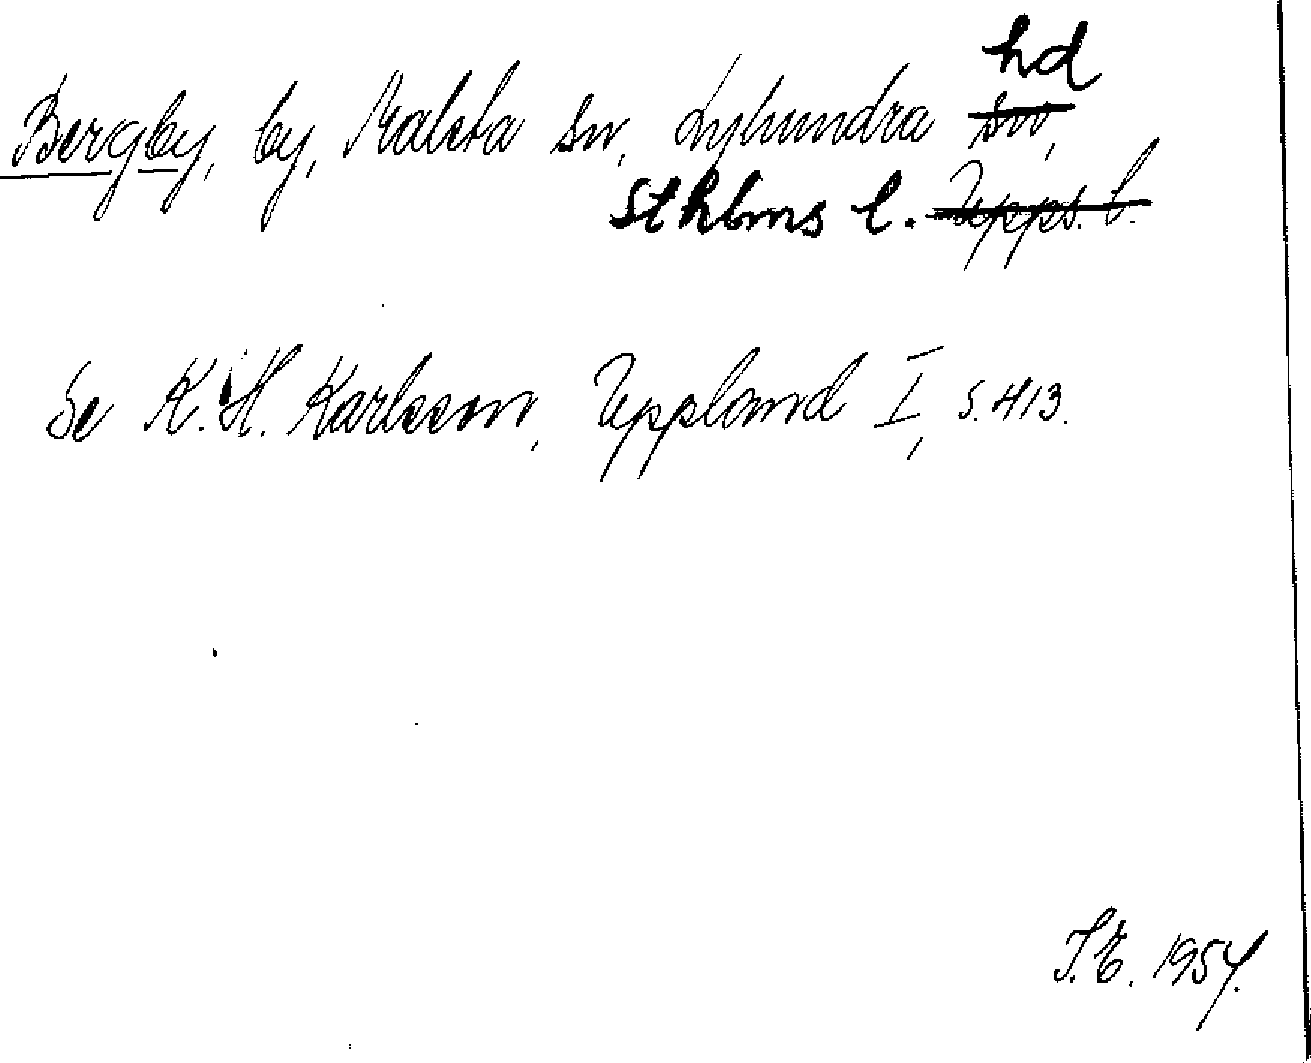 Bergby, by, Malsta sn, Lyhundra hd
sn,
Sthlms l. Upps. l.
Se K. H. Karlsson, Uppland I, s. 413.
I. E. 1954.